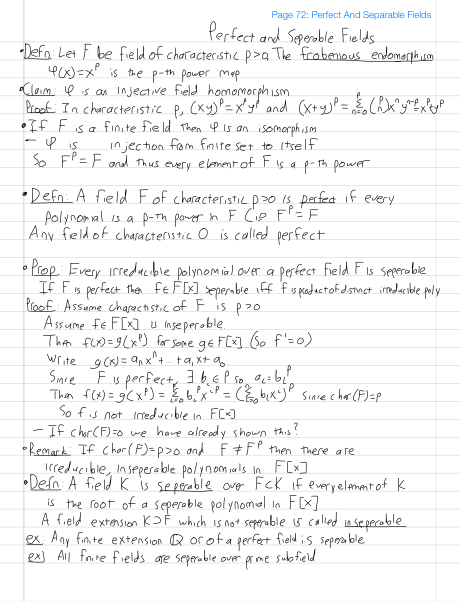 Page 72: Perfect And Separable Fields
Perfect and Seperable Fields
• Defn: Let F be field of characteristic p>0, The frobenious endomorphism
φ(x)=x^p is the p-th power map
• Claim: φ is an injective field homomorphism
Proof: In characteristic p, (xy)^p=x^p y^p and (x+y)^p = Σ_{n=0}^{p} (p n) x^n y^{n-p} = x^p+y^p
• If F is a finite field then φ is an isomorphism
- φ is injection from finite set to itself
So F^p=F and thus every element of F is a p-th power
• Defn: A field F of characteristic p>0 is perfect if every
polynomial is a p-th power in F (ie F^p=F
Any field of characteristic 0 is called perfect
• Prop: Every irreducible polynomial over a perfect field F is seperable
If F is perfect then f∈F[x] seperable iff f is product of distinct irreducible poly
Proof: Assume charactistic of F is p>0
Assume f∈F[x] is inseperable
Then f(x)=g(x^p) for some g∈F[x] (So f'=0)
Write g(x)=a_n x^n+...+a_1 x+a_0
Since F is perfect, ∃ b_i∈F so a_i=b_i^p
Then f(x)=g(x^p)=Σ b_i^p x^{ip}=(Σ b_i x^i)^p since char(F)=p
So f is not irreducible in F[x]
- If char(F)=0 we have already shown this?
• Remark: If char(F)=p>0 and F≠F^p then there are
irreducible, inseperable polynomials in F[x]
• Defn: A field K is seperable over F⊂K if every element of K
is the root of a seperable polynomial in F[x]
A field extension K⊃F which is not seperable is called inseperable
ex: Any finite extension Q or of a perfect field is seperable
ex) All finite fields are seperable over prime subfield